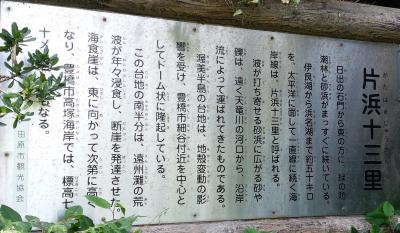 片浜十三里
かたはま
日出の石門から東の方に、緑の防
潮林と砂浜がまっすぐに続いている。
伊良湖から浜名湖まで約五十キロ
を、太平洋に面して一直線に続く海
岸線は、片浜十三里と呼ばれる。
波が打ち寄せる砂浜に広がる砂や
礫は、遠く天竜川の河口から、沿岸
流によって運ばれてきたものである。
渥美半島の台地は、地殻変動の影
響を受け、豊橋市細谷付近を中心と
してドーム状に隆起している。
この台地の南半分は、遠州灘の荒
波が年々浸食し、断崖を発達させた。
海食崖は、東に向かって次第に高く
なり、豊橋市高塚海岸では、標高七
十メ なる。
田原市観光協会